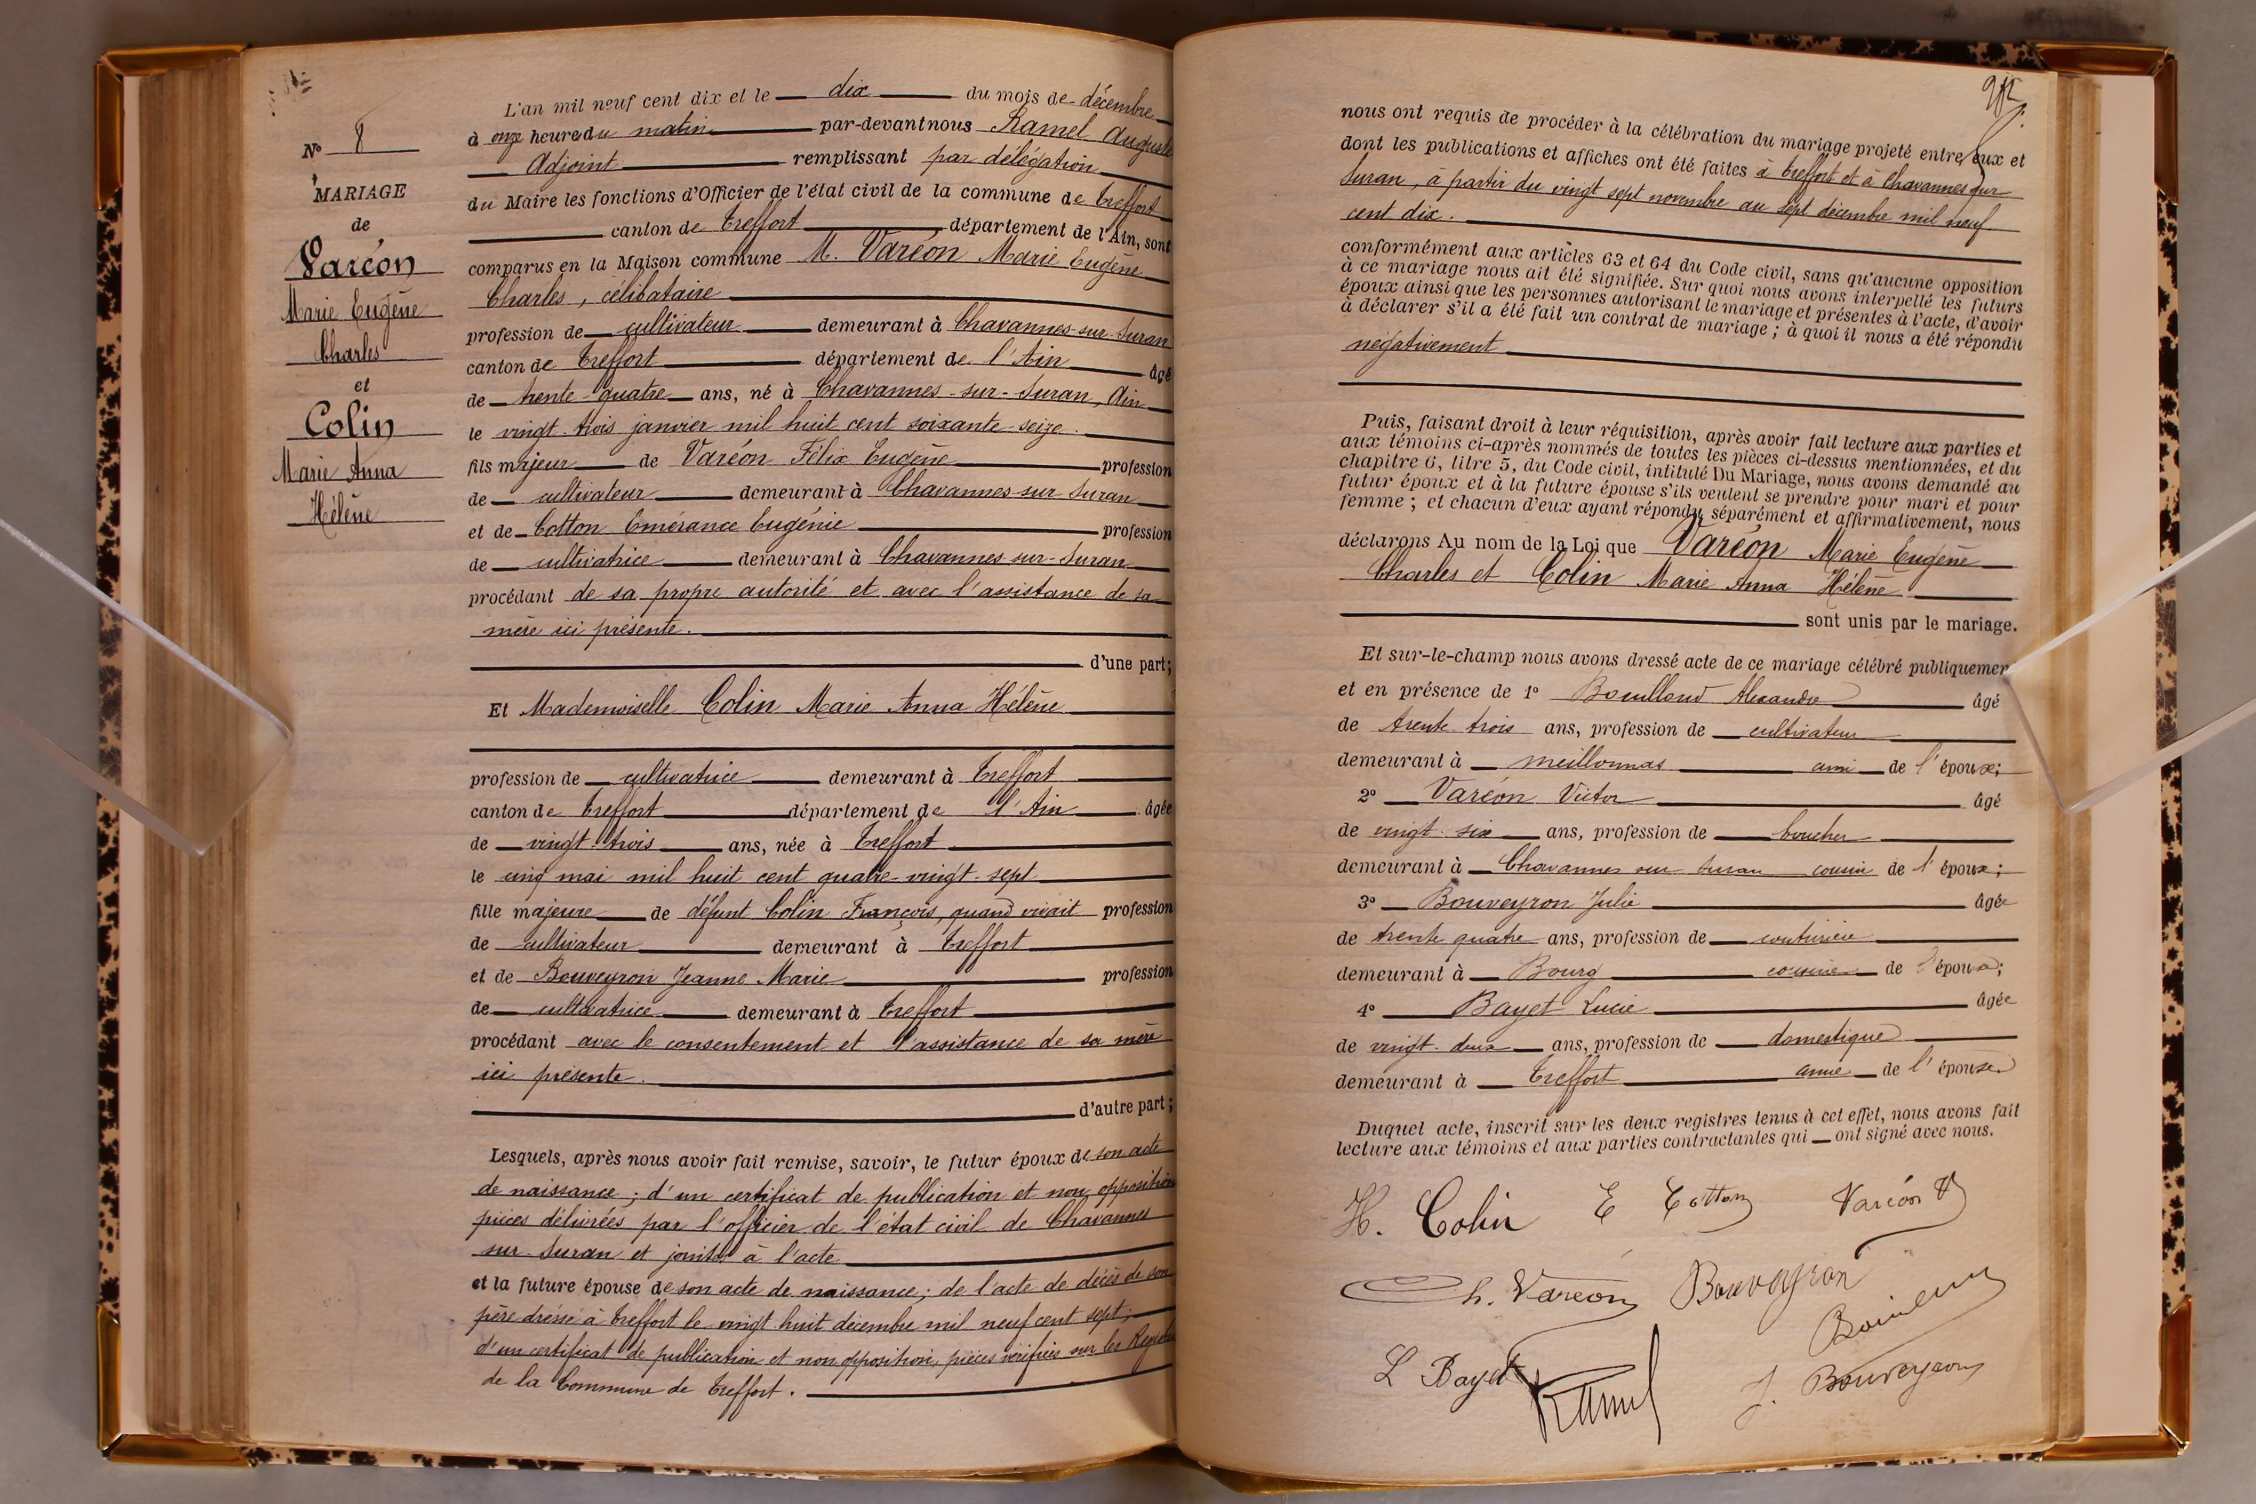 N° 8
MARIAGE
de
Varéon
Marie Eugène
Charles
et
Colin
Marie Anna
Hélène
L'an mil neuf cent dix et le dix du mois de décembre
à onze heure du matin par-devant nous Ramel Auguste
Adjoint remplissant par délégation
du Maire les fonctions d'Officier de l'état civil de la commune de Treffort
canton de Treffort département de l'Ain, sont
comparus en la Maison commune M. Varéon Marie Eugène
Charles, célibataire
profession de cultivateur demeurant à Chavannes-sur-Suran
canton de Treffort département de l'Ain âgé
de trente-quatre ans, né à Chavannes-sur-Suran, Ain
le vingt-trois janvier mil huit cent soixante-seize.
fils majeur de Varéon Félix Eugène profession
de cultivateur demeurant à Chavannes-sur-Suran
et de Cotton Emérance Eugénie profession
de cultivatrice demeurant à Chavannes-sur-Suran
procédant de sa propre autorité et avec l'assistance de sa
mère ici présente.
d'une part;
Et Mademoiselle Colin Marie Anna Hélène
profession de cultivatrice demeurant à Treffort
canton de Treffort département de l'Ain âgée
de vingt-trois ans, née à Treffort
le cinq mai mil huit cent quatre-vingt-sept
fille majeure de défunt Colin François, quand vivait profession
de cultivateur demeurant à Treffort
et de Bouveyron Jeanne Marie profession
de cultivatrice demeurant à Treffort
procédant avec le consentement et l'assistance de sa mère
ici présente.
d'autre part;
Lesquels, après nous avoir fait remise, savoir, le futur époux de son acte
de naissance; d'un certificat de publication et non opposition
pièces délivrées par l'officier de l'état civil de Chavannes
sur-Suran et jointes à l'acte
et la future épouse de son acte de naissance; de l'acte de décès de son
père dressé à Treffort le vingt-huit décembre mil neuf cent sept;
d'un certificat de publication et non opposition, pièces vérifiées sur les Registres
de la Commune de Treffort.
nous ont requis de procéder à la célébration du mariage projeté entre eux et
dont les publications et affiches ont été faites à Treffort et à Chavannes sur
Suran, à partir du vingt sept novembre au sept décembre mil neuf
cent dix.
conformément aux articles 63 et 64 du Code civil, sans qu'aucune opposition
à ce mariage nous ait été signifiée. Sur quoi nous avons interpellé les futurs
époux ainsi que les personnes autorisant le mariage et présentes à l'acte, d'avoir
à déclarer s'il a été fait un contrat de mariage; à quoi il nous a été répondu
négativement
Puis, faisant droit à leur réquisition, après avoir fait lecture aux parties et
aux témoins ci-après nommés de toutes les pièces ci-dessus mentionnées, et du
chapitre 6, titre 5, du Code civil, intitulé Du Mariage, nous avons demandé au
futur époux et à la future épouse s'ils veulent se prendre pour mari et pour
femme; et chacun d'eux ayant répondu séparément et affirmativement, nous
déclarons Au nom de la Loi que Varéon Marie Eugène
Charles et Colin Marie Anna Hélène
sont unis par le mariage.
Et sur-le-champ nous avons dressé acte de ce mariage célébré publiquemen
et en présence de 1° Bouilloud Alexandre âgé
de trente trois ans, profession de cultivateur
demeurant à Meillonnas ami de l'époux;
2° Varéon Victor âgé
de vingt-six ans, profession de boucher
demeurant à Chavannes sur Suran cousin de l'époux;
3° Bouveyron Julie âgée
de trente quatre ans, profession de couturière
demeurant à Bourg cousine de l'épouse;
4° Bayet Lucie âgée
de vingt-deux ans, profession de domestique
demeurant à Treffort amie de l'épouse
Duquel acte, inscrit sur les deux registres tenus à cet effet, nous avons fait
lecture aux témoins et aux parties contractantes qui ont signé avec nous.
H. Colin E Cotton Varéon V
Ch. Varéon Bouveyron
L Bayet Ramel J. Bouveyron